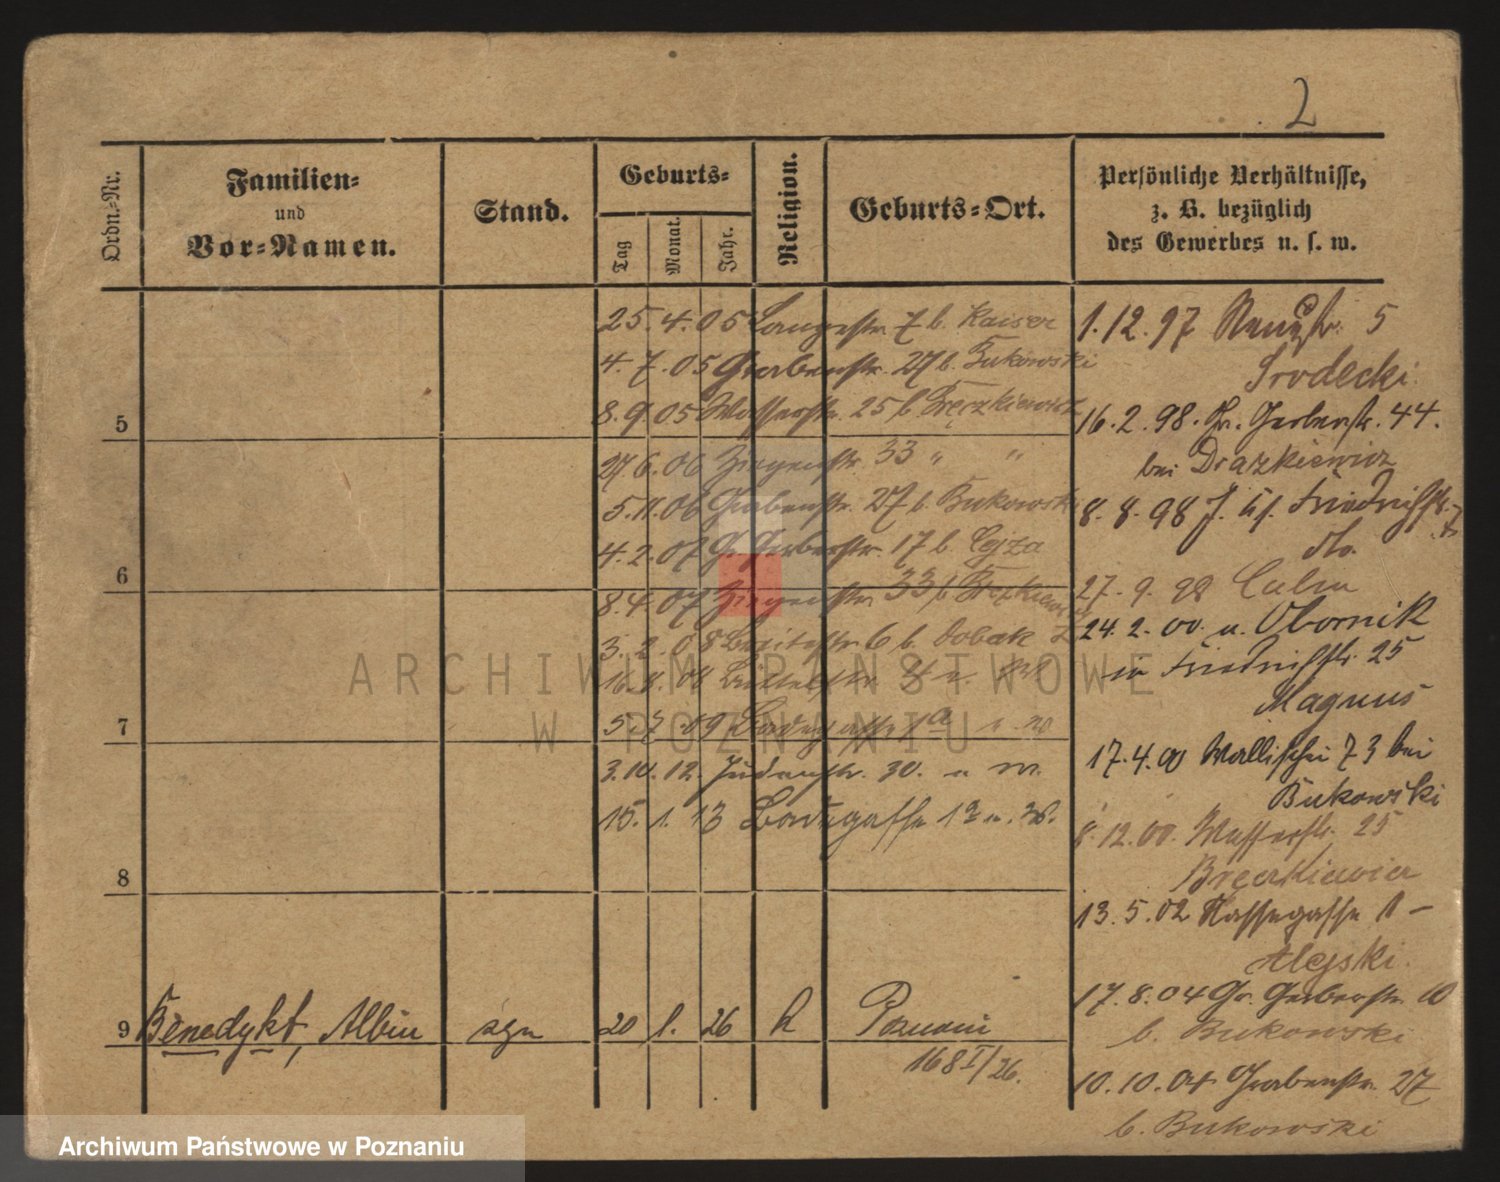 2
Ordn.-Nr.
Familien-
und
Vor-Namen.
Stand.
Geburts-
Tag
Monat.
Jahr.
Religion.
Geburts-Ort.
Persönliche Verhältnisse,
z. B. bezüglich
des Gewerbes u. s. w.
25. 4. 05 Langestr. 7 b. Kaiser
4. 7. 05 Grabenstr. 27 b. Bukowski
8. 9. 05 Wasserstr. 25 b.
5
27. 6. 06 Ziegenstr. 33 " "
5. 11. 06 Grabenstr. 27 b. Bukowski
4. 2. 07 Gr. Gerberstr. 17 b.
6
8. 4. 07 Ziegenstr. 33 b.
3. 2. 08 6 b. Dobak
08 Büttelstr.
7
5. 09 Badegasse 1a
3. 10. 12. Judenstr. 30. u W.
15. 1. 13 Badegasse 1a u. W.
8
9 Benedykt, Albin syn 20 1. 26 k Poznań
168 I/26.
1. 12. 97 5
Srodecki
16. 2. 98. Gr. Gerberstr. 44.
bei Drazkiewicz
8. 8. 98 J. u/.
do.
27. 9. 98 Culm
24. 2. 00. u. Obornik
in Friedrichstr. 25
Magnus
17. 4. 00 Wallischei 73 bei
Bukowski
8. 12. 00. Wasserstr. 25
13. 5. 02 1 -
17. 8. 04 Gr. Gerberstr. 10
b. Bukowski
10. 10. 04 Grabenstr. 27
b. Bukowski
ARCHIWUM PAŃSTWOWE
W POZNANIU
Archiwum Państwowe w Poznaniu